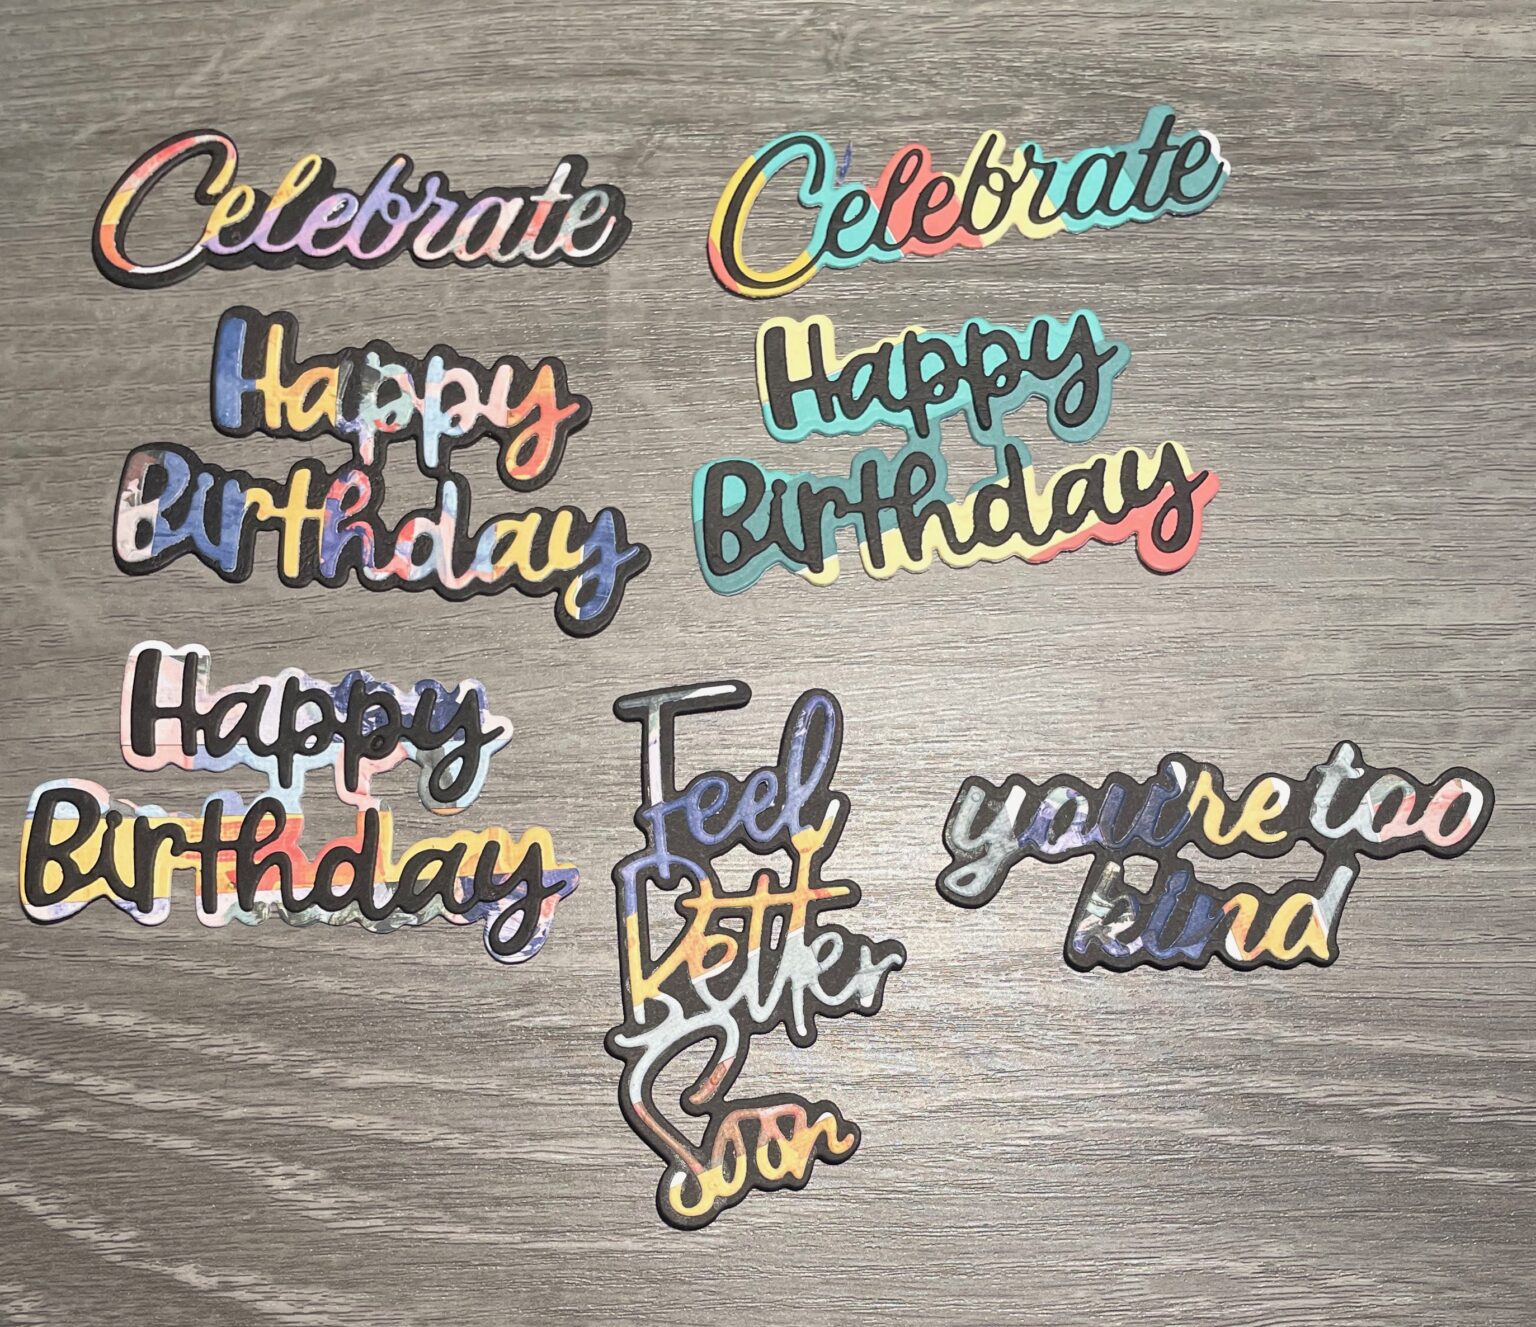 Celebrate
Celebrate
Happy
Birthday
Happy
Birthday
Happy
Birthday
Feel
Better
Soon
you're too
kind